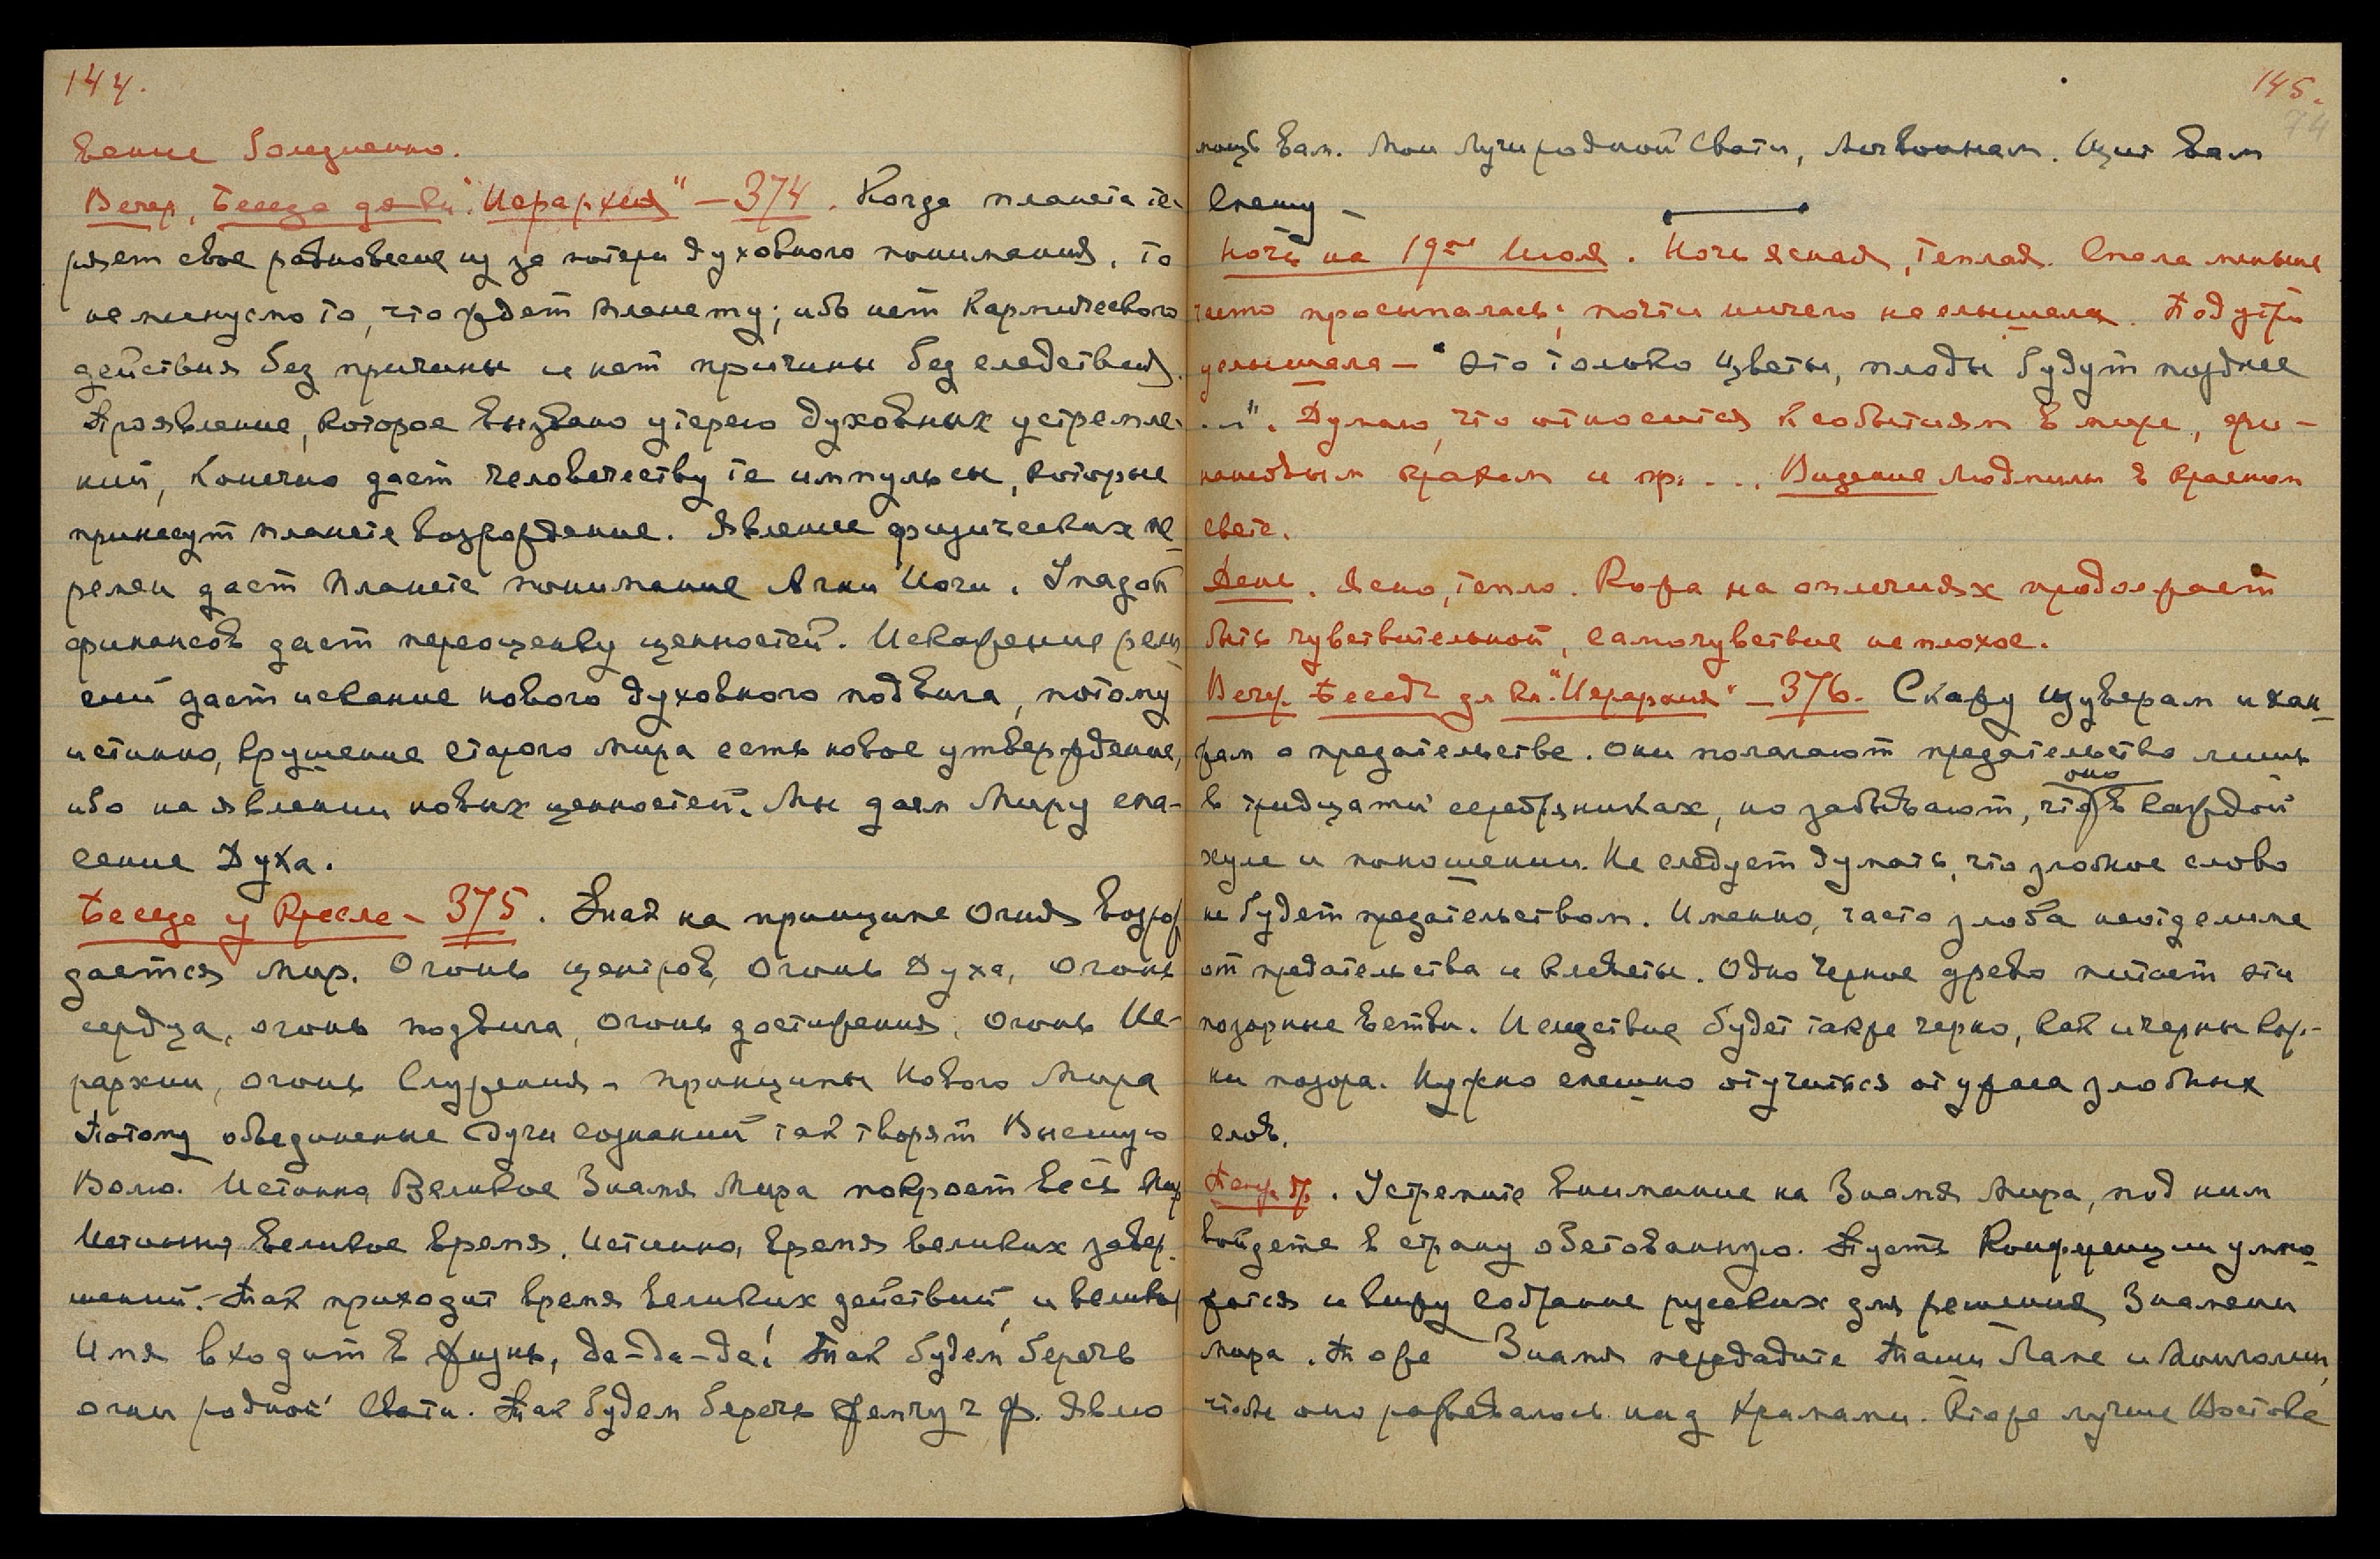 144.
вение болезненно.
Вечер, Беседа для кн. "Иерархия" – 374. Когда планета те-
ряет свое равновесие из за потери духовного понимания, то
неминуемо то, что ждет планету; ибо нет Кармического
действия без причины и нет причины без следствия.
Проявление, которое вызвано утерею духовных устремле-
ний, конечно дает человечеству те импульсы, которые
принесут планете возрождение. Явление физических пе-
ремен даст планете понимание Агни Йоги. Упадок
финансов даст переоценку ценностей. Искажение рели-
гий даст искание нового духовного подвига, потому
истинно, крушение старого мира есть новое утверждение,
ибо на явлении новых ценностей Мы даем Миру спа-
сение Духа.
Беседа у Кресла – 375. Так на принципе Огня возрож
дается мир. Огонь центров, Огонь Духа, огонь
сердца, огонь подвига, огонь достижения, огонь Ие-
рархии, огонь Служения – принципы Нового Мира
Потому объединенные дуги сознаний так творят Высшую
Волю. Истинно, Великое Знамя Мира покроет весь Мир
Истинно, великое время. Истинно, время великих завер-
шений. – Так приходит время великих действий, и великое
Имя входит в жизнь, да-да-да! Так будем беречь
огни родной Свати. Так будем беречь жемчуг Ф. Явлю
145.
74
мощь вам. Мои Лучи родной Свати, Мы внимаем. Щит вам
Спешу –
Ночь на 19ое Июля. Ночь ясная, теплая. Спала меньше
часто просыпалась; почти ничего не слышала. Под утро
услышала – "Это только цветы, плоды будут позднее
...". Думаю, что относится к событиям в мире, фи-
нансовым крахам и пр. ... Видение Людмилы в красном
свете.
День. Ясно, тепло. Кожа на оплечиях продолжает
быть чувствительной, самочувствие не плохое.
Вечер Беседа для кн. "Иерархия" – 376. Скажу изуверам и хан-
жам о предательстве. Они полагают предательство лишь
в тридцати серебряниках, но забывают, что оно в каждой
хуле и поношении. Не следует думать, что злобное слово
не будет предательством. Именно, часто злоба неотделима
от предательства и клеветы. Одно черное древо питает эти
позорные ветви. И следствие будет также черно, как и черны кор-
ни позора. Нужно спешно отучиться от ужаса злобных
слов.
Устремите внимание на Знамя Мира, под ним
войдете в страну обетованную. Пусть Конференции умно
жатся и вижу собрание русских для решения Знамени
Мира. Тоже Знамя передадите Таши Ламе и Монголии,
чтобы оно развевалось над Храмами. Кто же лучше Востока